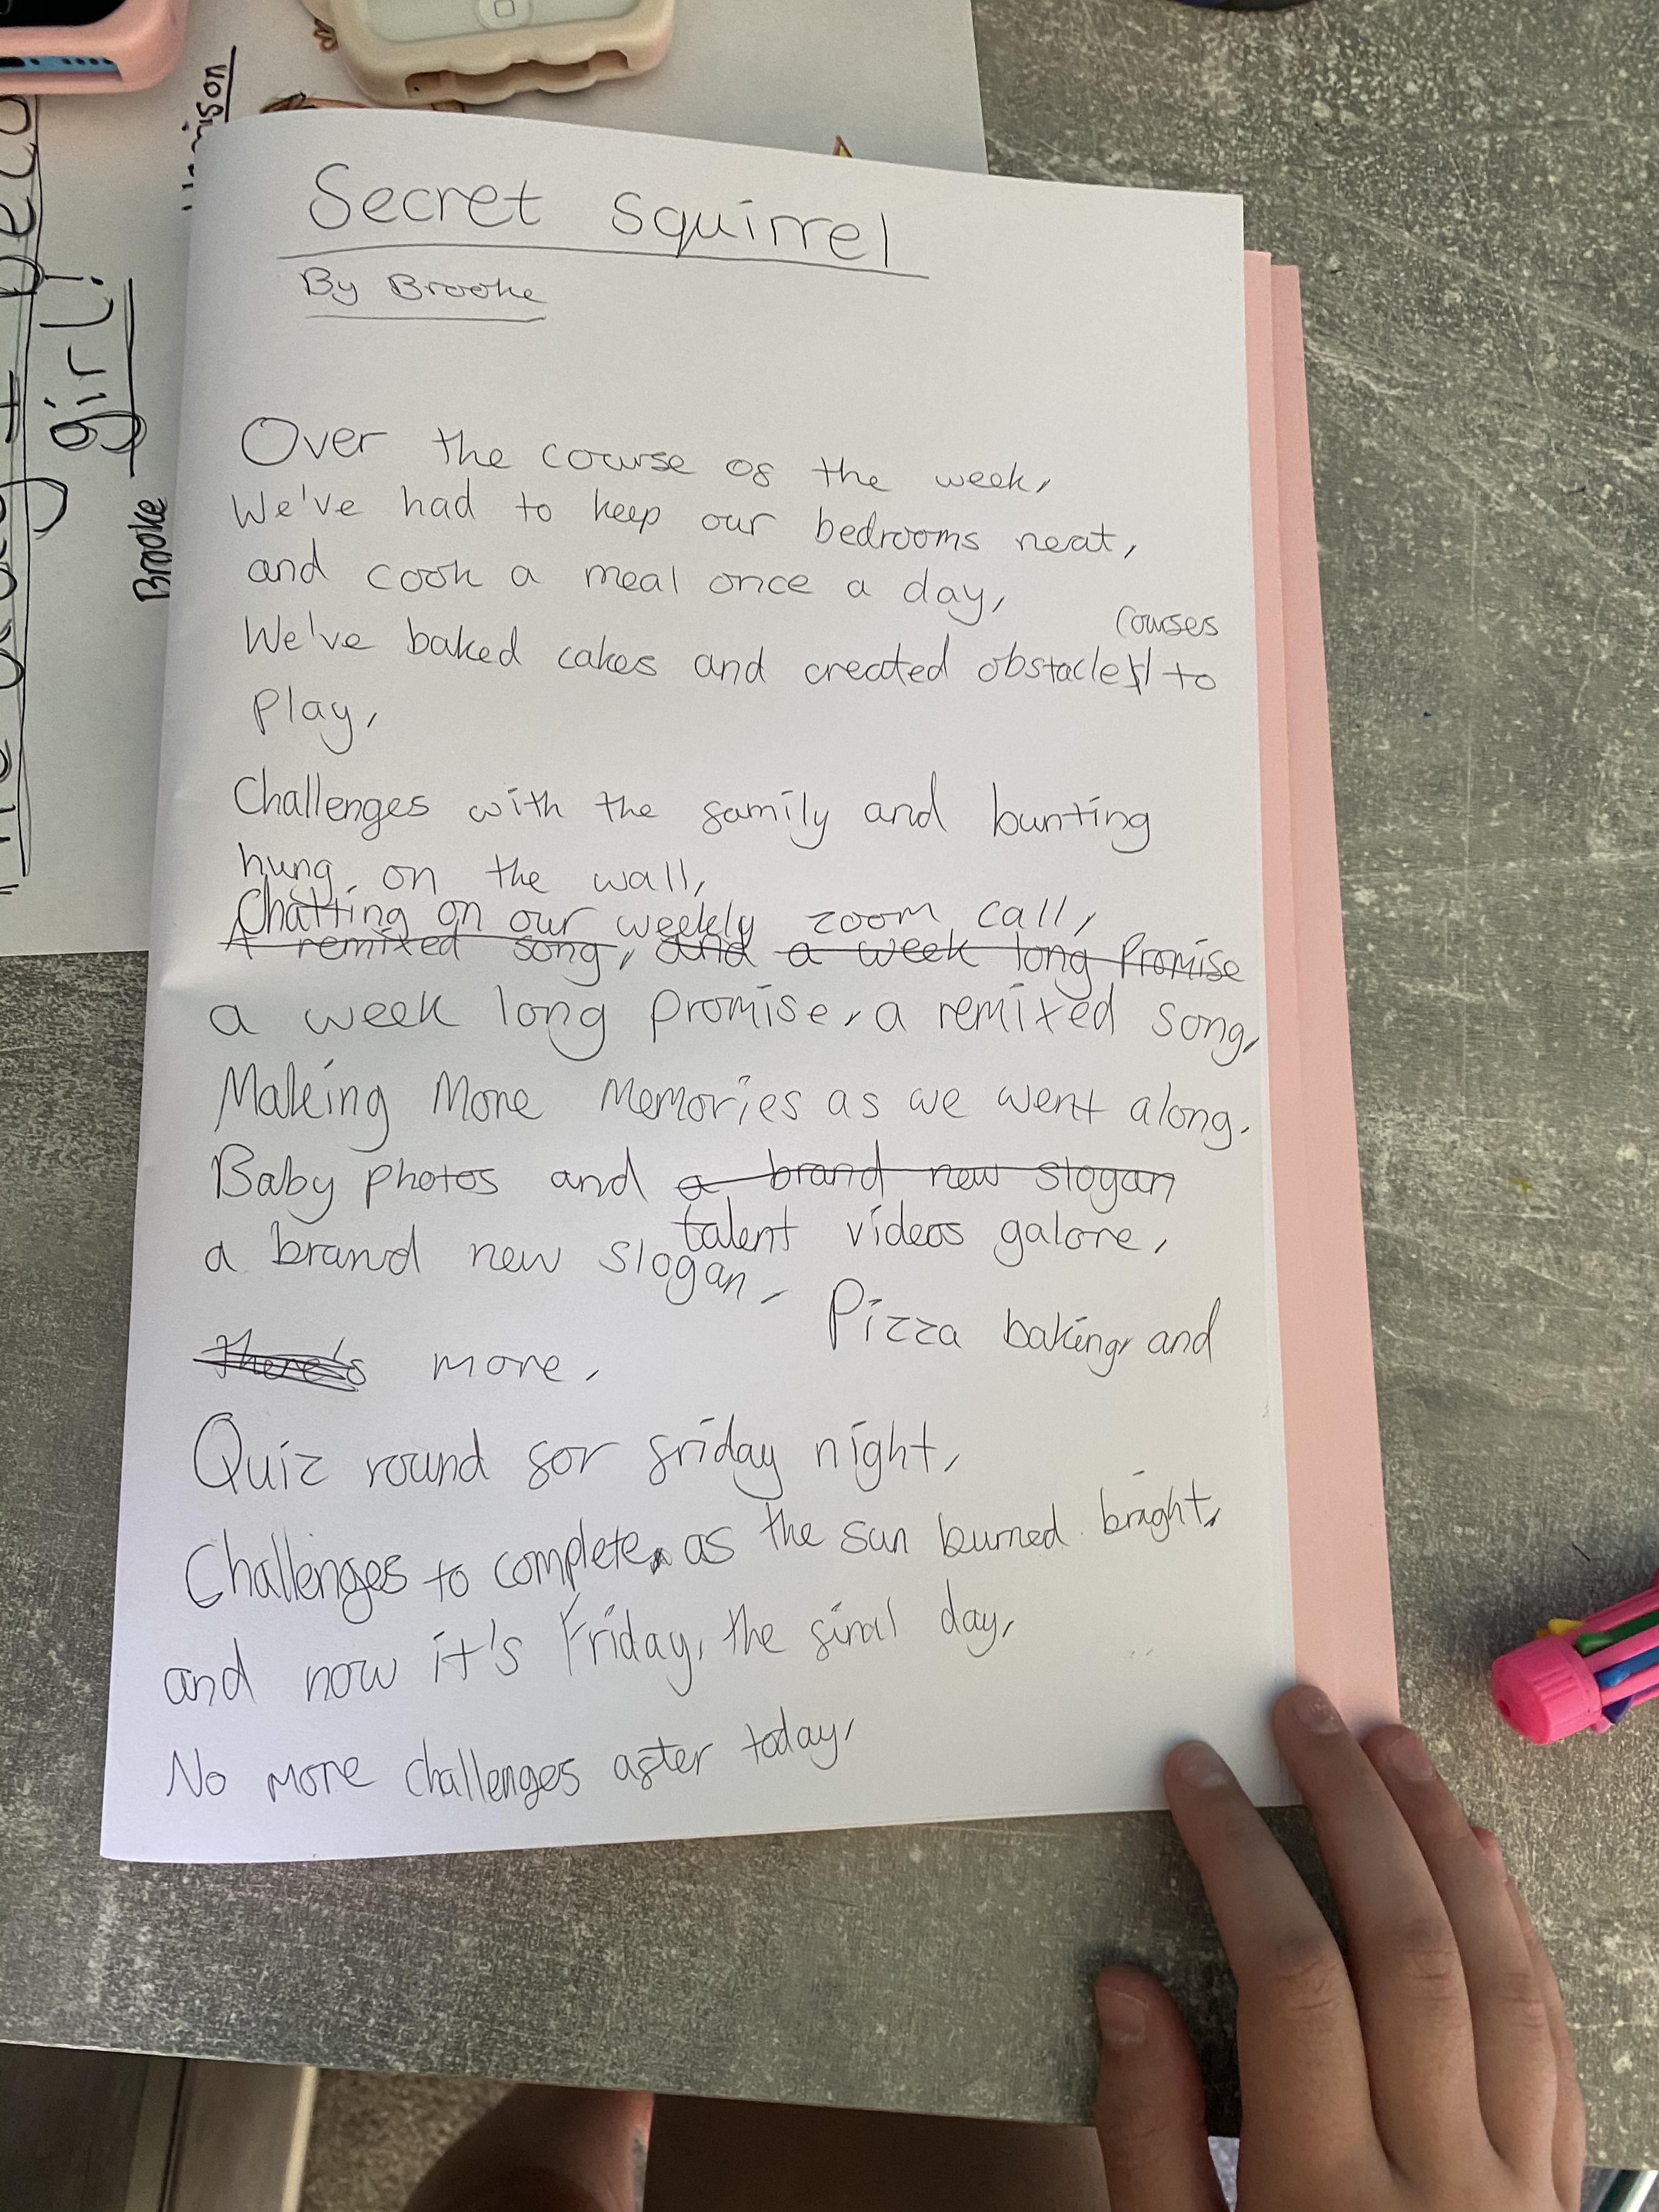 Secret Squirrel
By Brooke
Over the course of the week,
We've had to keep our bedrooms neat,
and cook a meal once a day,
courses
We've baked cakes and created obstacle to
play,
Challenges with the family and bunting
hung on the wall,
Chatting on our weekly zoom call,
A remixed song, and a week long promise
a week long promise, a remixed song,
Making more memories as we went along.
Baby photos and a brand new slogan
talent videos galore,
a brand new slogan,
Pizza baking and
there's more,
Quiz round for friday night,
Challenges to complete as the sun burned bright,
and now it's Friday, the final day,
No more challenges after today,
girl!
Brooke